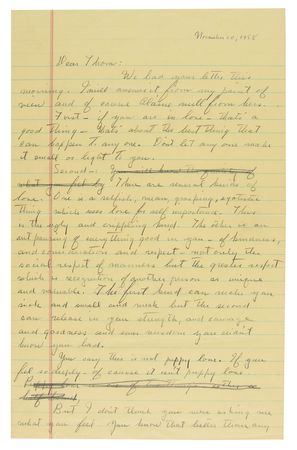 November 10, 1958
Dear Thom:
We had your letter this
morning. I will answer it from my point of
view and of course Elaine will from hers.
First - if you are in love - that's a
good thing - that's about the best thing that
can happen to any one. Don't let any one make
it small or light to you.
Second -
There are several kinds of
love. One is a selfish, mean, grasping, egotistic
thing which uses love for self importance. This
is the ugly and crippling kind. The other is an
out pouring of everything good in you - of kindness,
and consideration and respect - not only the
social respect of manners but the greater respect
which is recognition of another person as unique
and valuable. The first kind can make you
sick and small and weak but the second
can release in you strength, and courage
and goodness and even wisdom you didn't
know you had.
You say this is not puppy love. If you
feel so deeply - of course it isn't puppy love.
But I don't think you were asking me
what you feel. You know that better than any